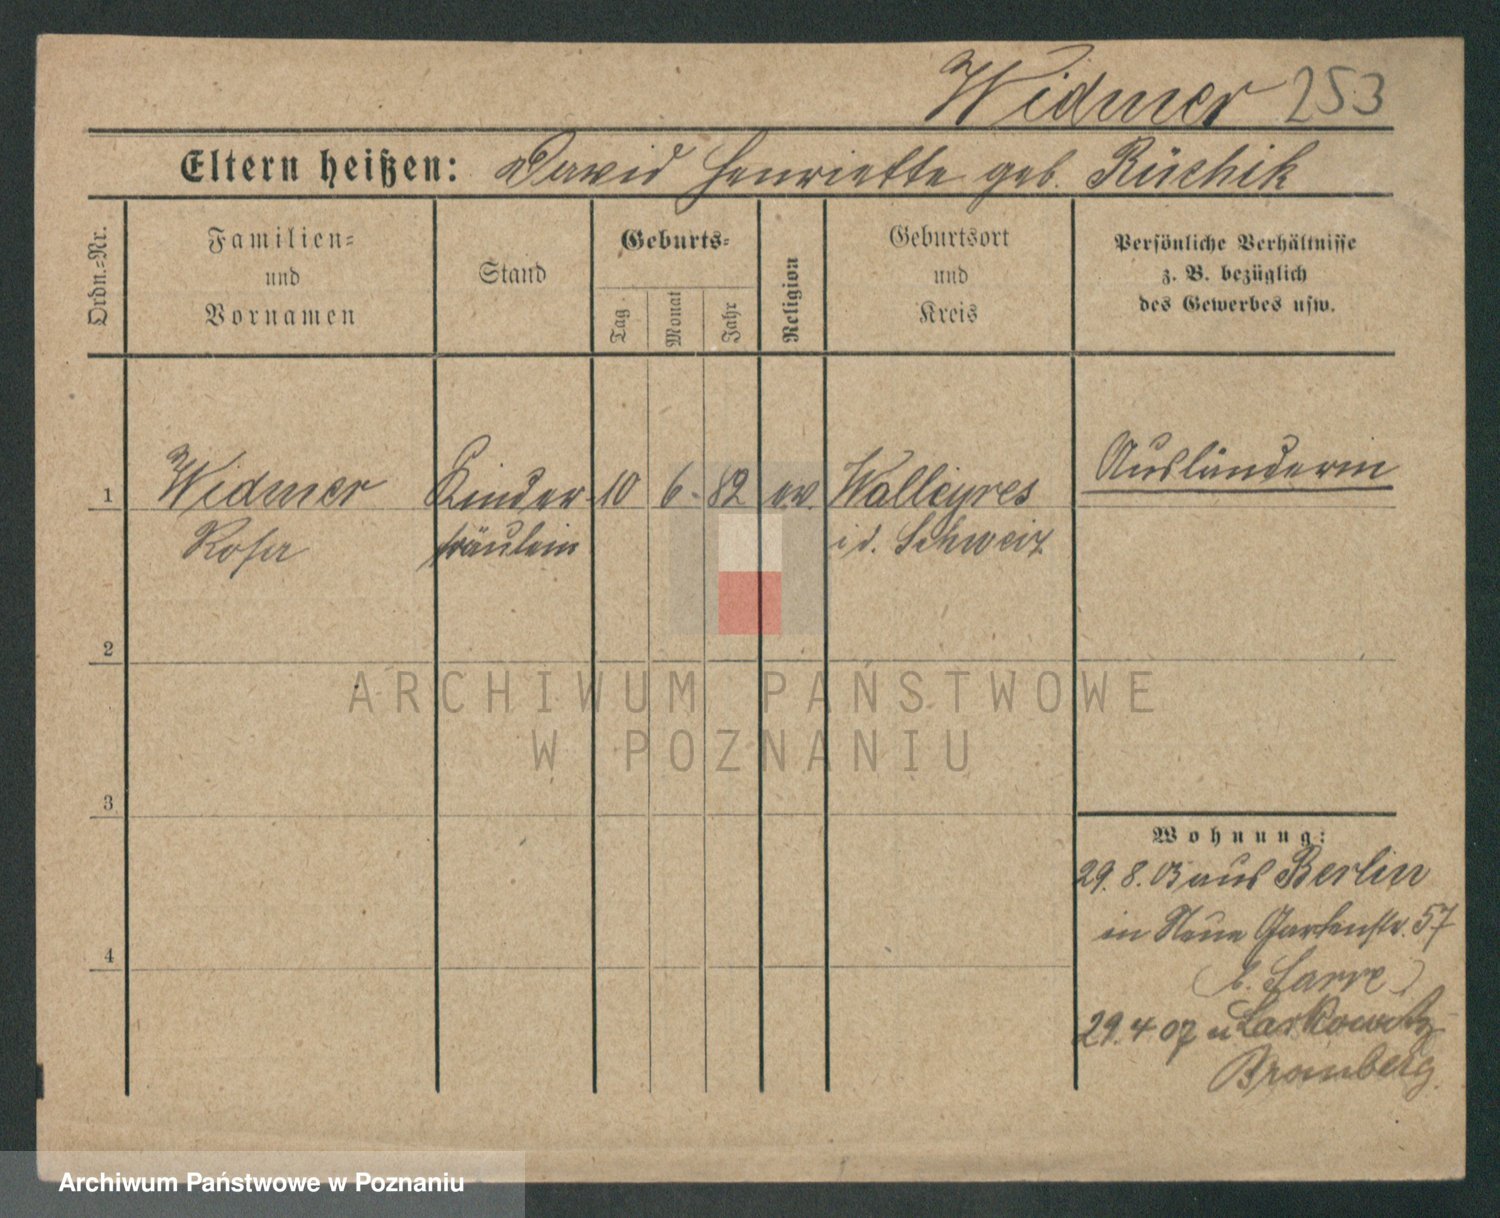 Widmer 253
Eltern heißen: David Henriette geb. Rüchik
Ordn.-Nr.
Familien- und Vornamen
Stand
Geburts-
Tag
Monat
Jahr
Religion
Geburtsort und Kreis
Persönliche Verhältnisse z. B. bezüglich des Gewerbes usw.
1 Widmer Kinder- 10 6. 82 ev. Walleyres Ausländerin
Rosa fräulein i d. Schweiz
2
3
4
Wohnung:
29. 8. 03 aus Berlin
in Neue Gartenstr. 57
(b. Sarre)
29. 4 07 n Laskowitz
Bromberg.
ARCHIWUM PAŃSTWOWE
W POZNANIU
Archiwum Państwowe w Poznaniu